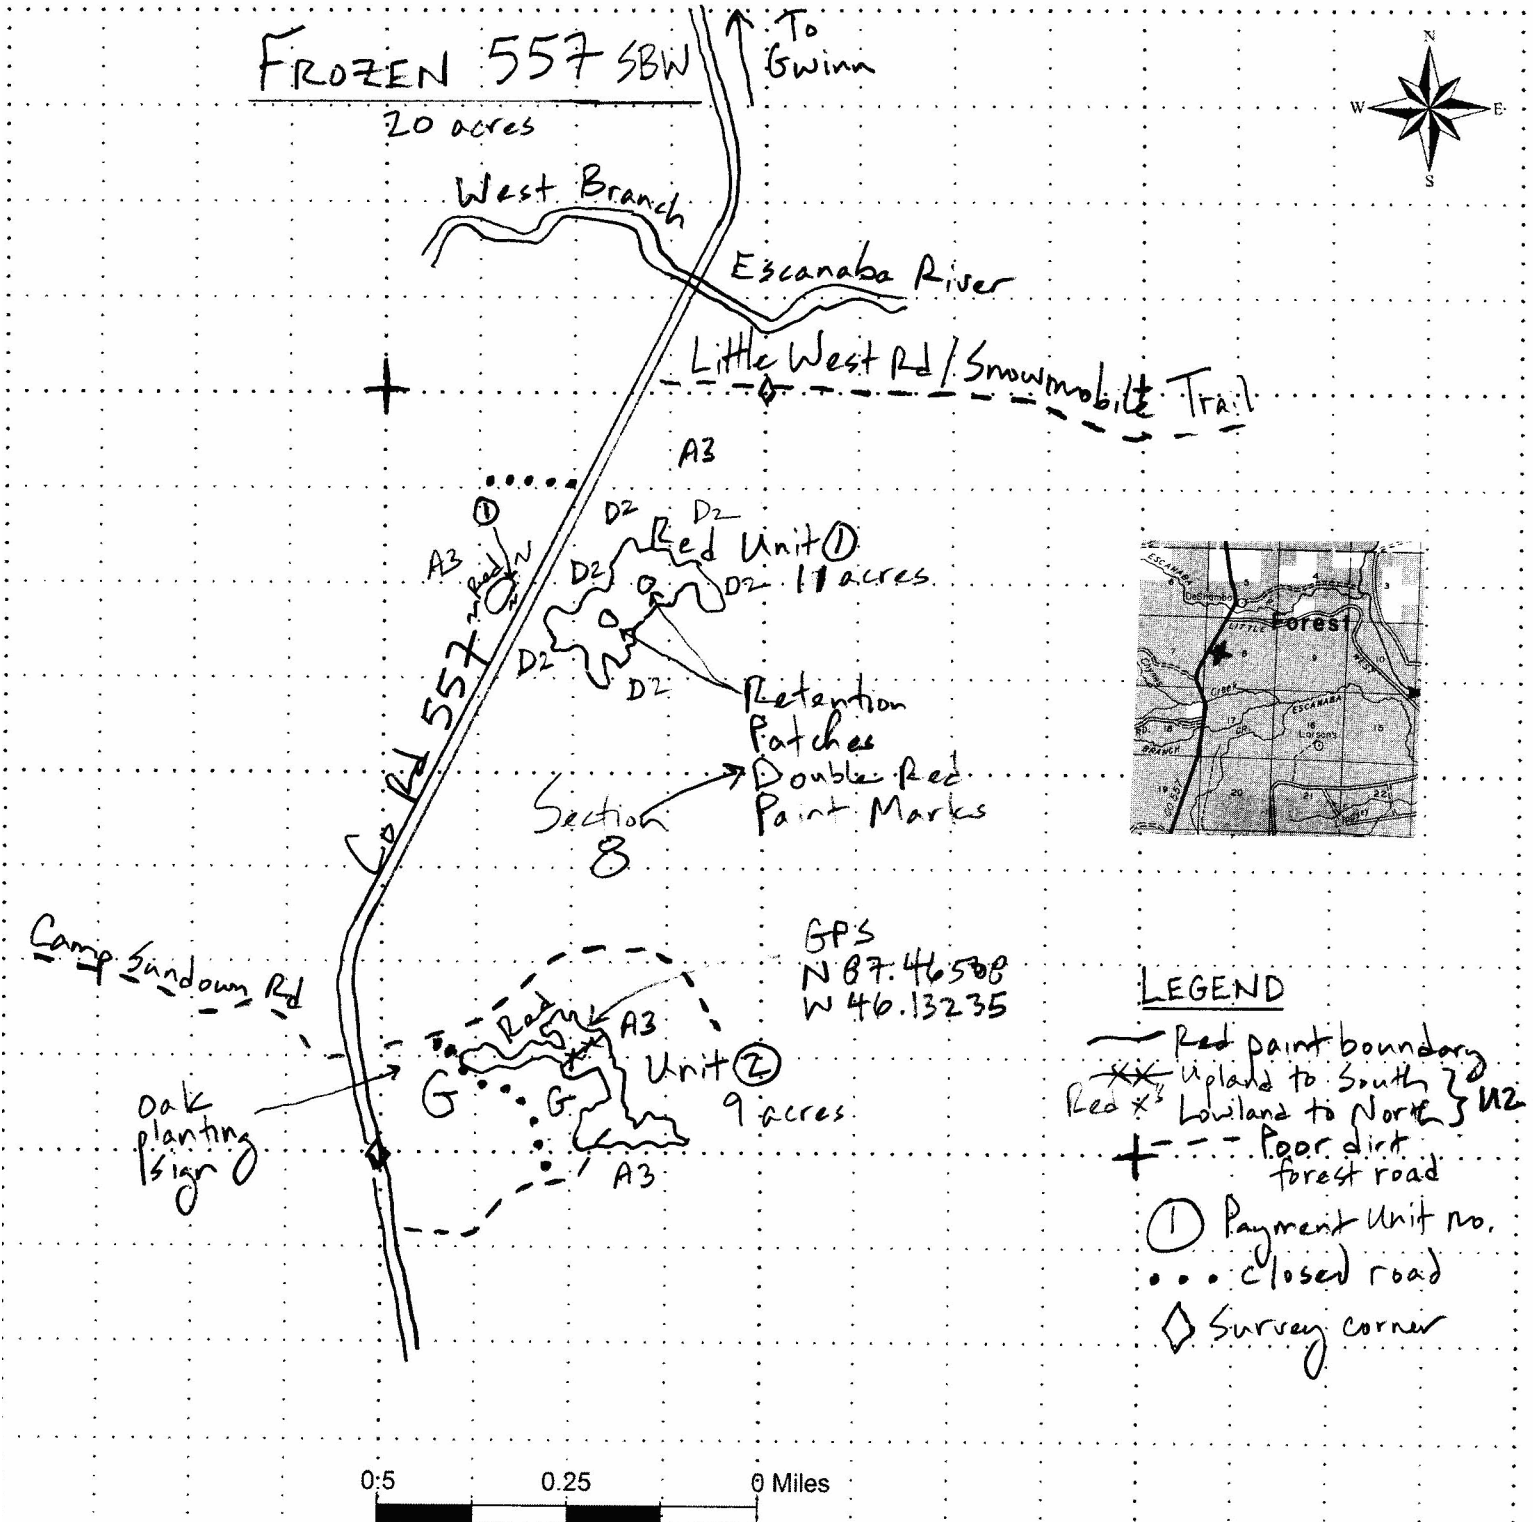 FROZEN 557 SBW
20 acres
To
Gwinn
N
W E
S
West Branch
Escanaba River
Little West Rd / Snowmobile Trail
A3
1
D2 D2
Red Unit 1
11 acres
A3
Red
D2
D2
D2
D2
Co Rd 557
Retention
Patches
Double Red
Paint Marks
Section
8
ESCANABA
Forest
LITTLE
WEST
Creek
ESCANABA
BRANCH
Larson's
CO 557
Camp Sundown Rd
GPS
W 46.13235
Red
A3
Unit 2
9 acres
G
G
A3
Oak
planting
sign
LEGEND
Red paint boundary
XX Upland to South
Red X's Lowland to North } U2
Poor dirt
forest road
1 Payment Unit no.
closed road
Survey corner
0.5 0.25 0 Miles